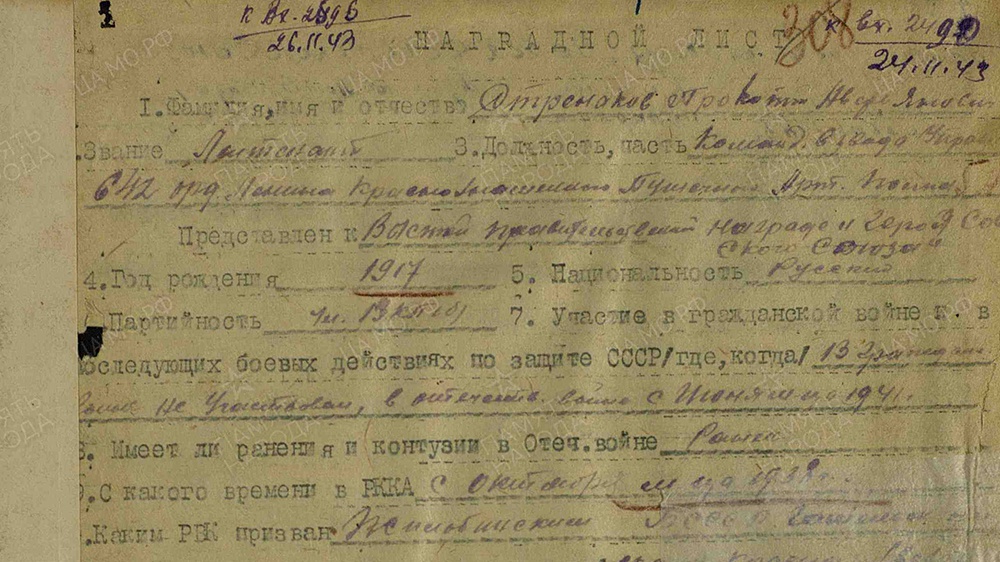 к Вх. 2495
26.11.43
НАГРАДНОЙ ЛИСТ
308
к вх. 2490
24.11.43
1. Фамилия, имя и отчество Прокопий
.Звание Лейтенант 3. Должность, часть Команд. взвода
642 орд. Ленина Краснознаменного Пушечного Арт. Полка
Представлен к Высшей правительственной награде и Герой Со
ского Союза"
4. Год рождения 1917 5. Национальность Русский
.Партийность Чл. ВКП(б) 7. Участие в гражданской войне и в
последующих боевых действиях по защите СССР/где, когда/ В Граждан
войне не участвовал, в отечествен. войне с Июня м-ца 1941г.
8. Имеет ли ранения и контузии в Отеч. войне Ранен
9. С какого времени в РККА с октября м-ца 1938г.
.Каким РВК призван Жлобинским БССР